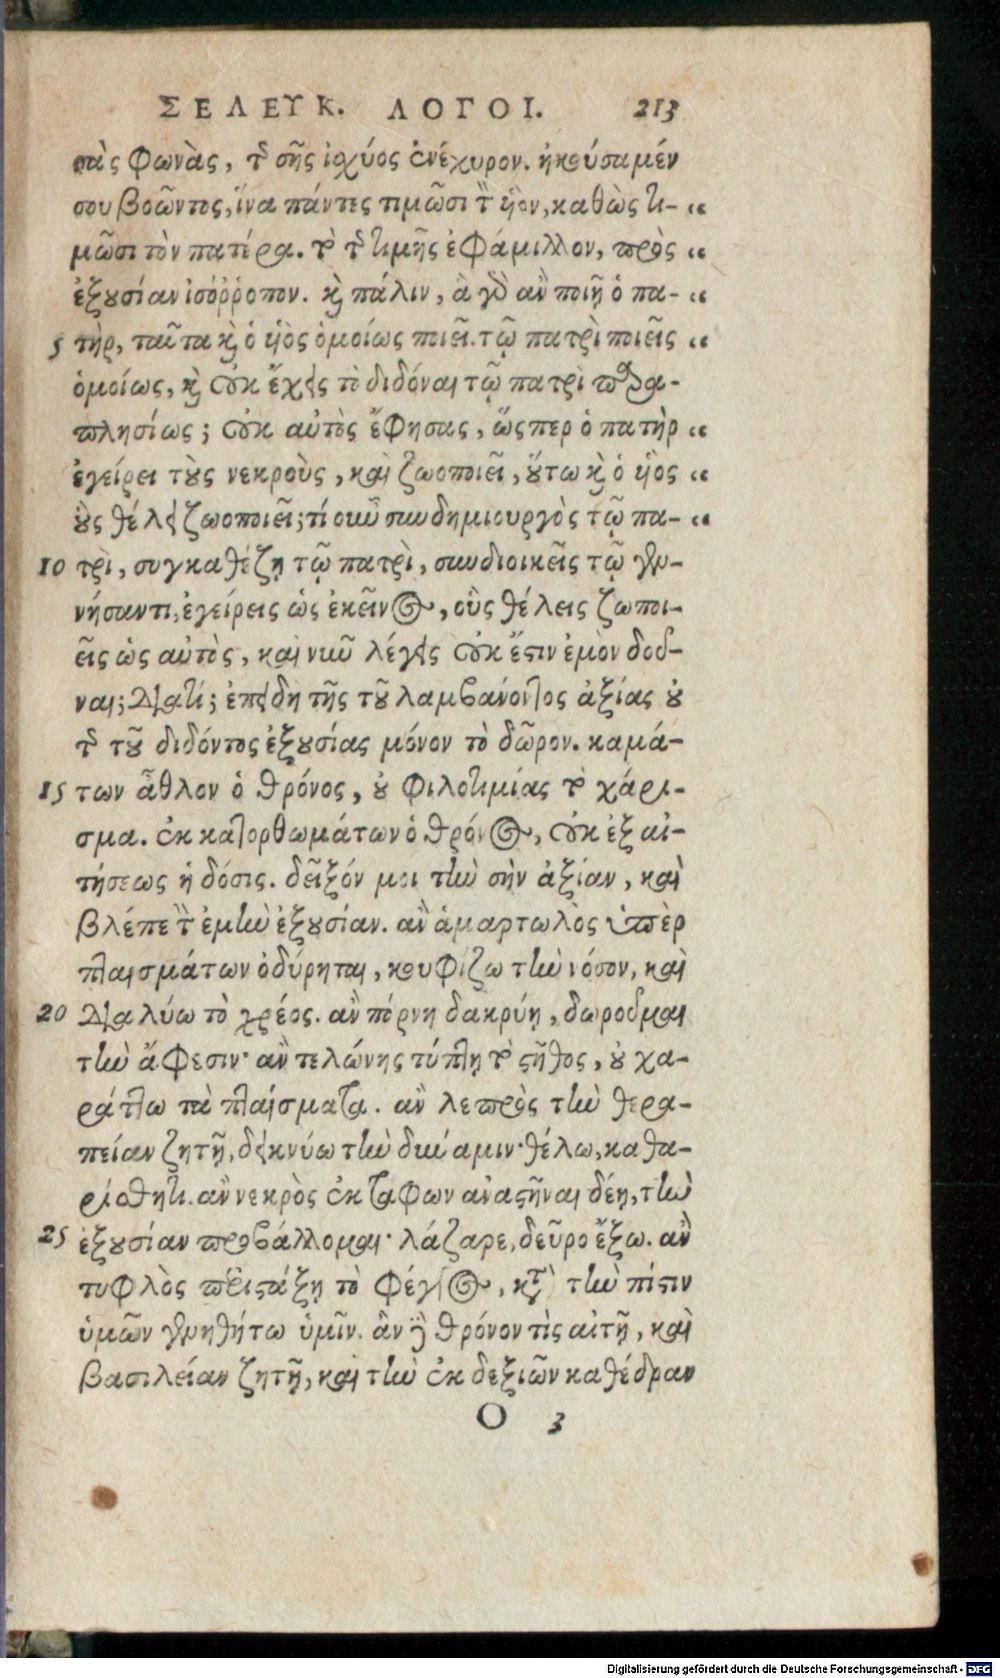 ΣΕΛΕΥΚ. ΛΟΓΟΙ. 213
τὰς φωνὰς, τῆς σῆς ἰσχύος ἐνέχυρον. ἠκούσαμέν
σου βοῶντος, ἵνα πάντες τιμῶσι τὸν ὑὸν, καθὼς τι- “
μῶσι τὸν πατέρα. τὸ τῆς τιμῆς ἐφάμιλλον, πρὸς “
ἐξουσίαν ἰσόῤῥοπον. καὶ πάλιν, ἃ γὰρ ἂν ποιῇ ὁ πα- “
5 τὴρ, ταῦτα καὶ ὁ ὑὸς ὁμοίως ποιεῖ. τῷ πατρὶ ποιεῖς “
ὁμοίως, καὶ οὐκ ἔχεις τὸ διδόναι τῷ πατρὶ παρα-
πλησίως; οὐκ αὐτὸς ἔφησας, ὥσπερ ὁ πατὴρ “
ἐγείρει τοὺς νεκροὺς, καὶ ζωοποιεῖ, οὕτω καὶ ὁ ὑὸς “
οὓς θέλει ζωοποιεῖ; τί οὖν συνδημιουργὸς τῷ πα- “
10 τρὶ, συγκαθέζῃ τῷ πατρὶ, συνδιοικεῖς τῷ γεν-
νήσαντι, ἐγείρεις ὡς ἐκεῖνος, οὓς θέλεις ζωποι-
εῖς ὡς αὐτὸς, καὶ νῦν λέγεις οὐκ ἔστιν ἐμὸν δοῦ-
ναι; Διατί; ἐπειδὴ τῆς τοῦ λαμβάνοντος ἀξίας οὐ
τῆς τοῦ διδόντος ἐξουσίας μόνον τὸ δῶρον. καμά-
15 των ἆθλον ὁ θρόνος, οὐ φιλοτιμίας τὸ χάρι-
σμα. ἐκ κατορθωμάτων ὁ θρόνος, οὐκ ἐξ αἰ-
τήσεως ἡ δόσις. δεῖξόν μοι τὴν σὴν ἀξίαν, καὶ
βλέπε τὴν ἐμὴν ἐξουσίαν. ἂν ἁμαρτωλὸς ὑπὲρ
πταισμάτων ὀδύρηται, κουφίζω τὴν νόσον, καὶ
20 Διαλύω τὸ χρέος. ἂν πόρνη δακρύῃ, δωροῦμαι
τὴν ἄφεσιν· ἂν τελώνης τύπτῃ τὸ στῆθος, οὐ χα-
ράττω τὰ πταίσματα. ἂν λεπρὸς τὴν θερα-
πείαν ζητῇ, δεικνύω τὴν δύναμιν· θέλω, καθα-
ρίσθητι. ἂν νεκρὸς ἐκ τάφων ἀναστῆναι δέῃ, τὴν
25 ἐξουσίαν προβάλλομαι· λάζαρε, δεῦρο ἔξω. ἂν
τυφλὸς περιστάξῃ τὸ φέγγος, κατὰ τὴν πίστιν
ὑμῶν γενηθήτω ὑμῖν. ἂν δὲ θρόνον τὶς αἰτῇ, καὶ
βασιλείαν ζητῇ, καὶ τὴν ἐκ δεξιῶν καθέδραν
O 3
Digitalisierung gefördert durch die Deutsche Forschungsgemeinschaft - DFG